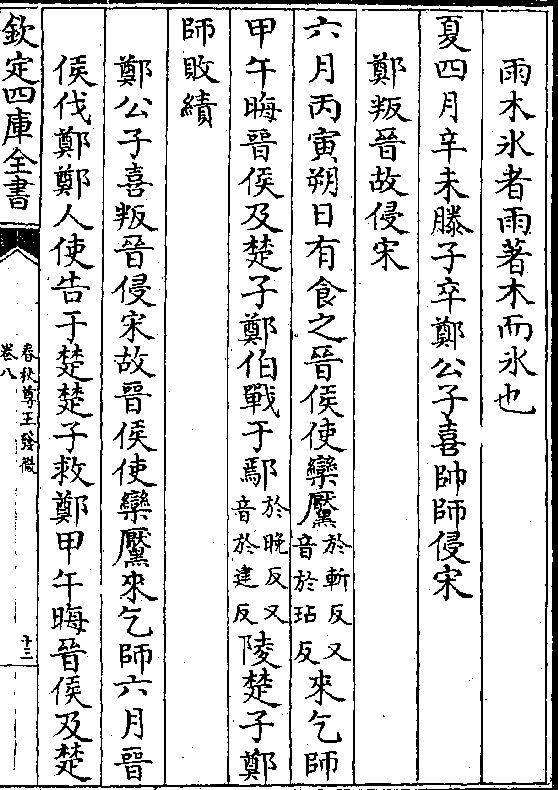 雨木氷者雨著木而氷也
夏四月辛未滕子卒鄭公子喜帥師侵宋
鄭叛晉故侵宋
六月丙寅朔日有食之晉侯使欒黶於斬反又音於玷反來乞師
甲午晦晉侯及楚子鄭伯戰于鄢於晚反又音於建反陵楚子鄭
師敗績
鄭公子喜叛晉侵宋故晉侯使欒黶來乞師六月晉
侯伐鄭鄭人使告于楚楚子救鄭甲午晦晉侯及楚
欽定四庫全書
春秋尊王發微
卷八
十三